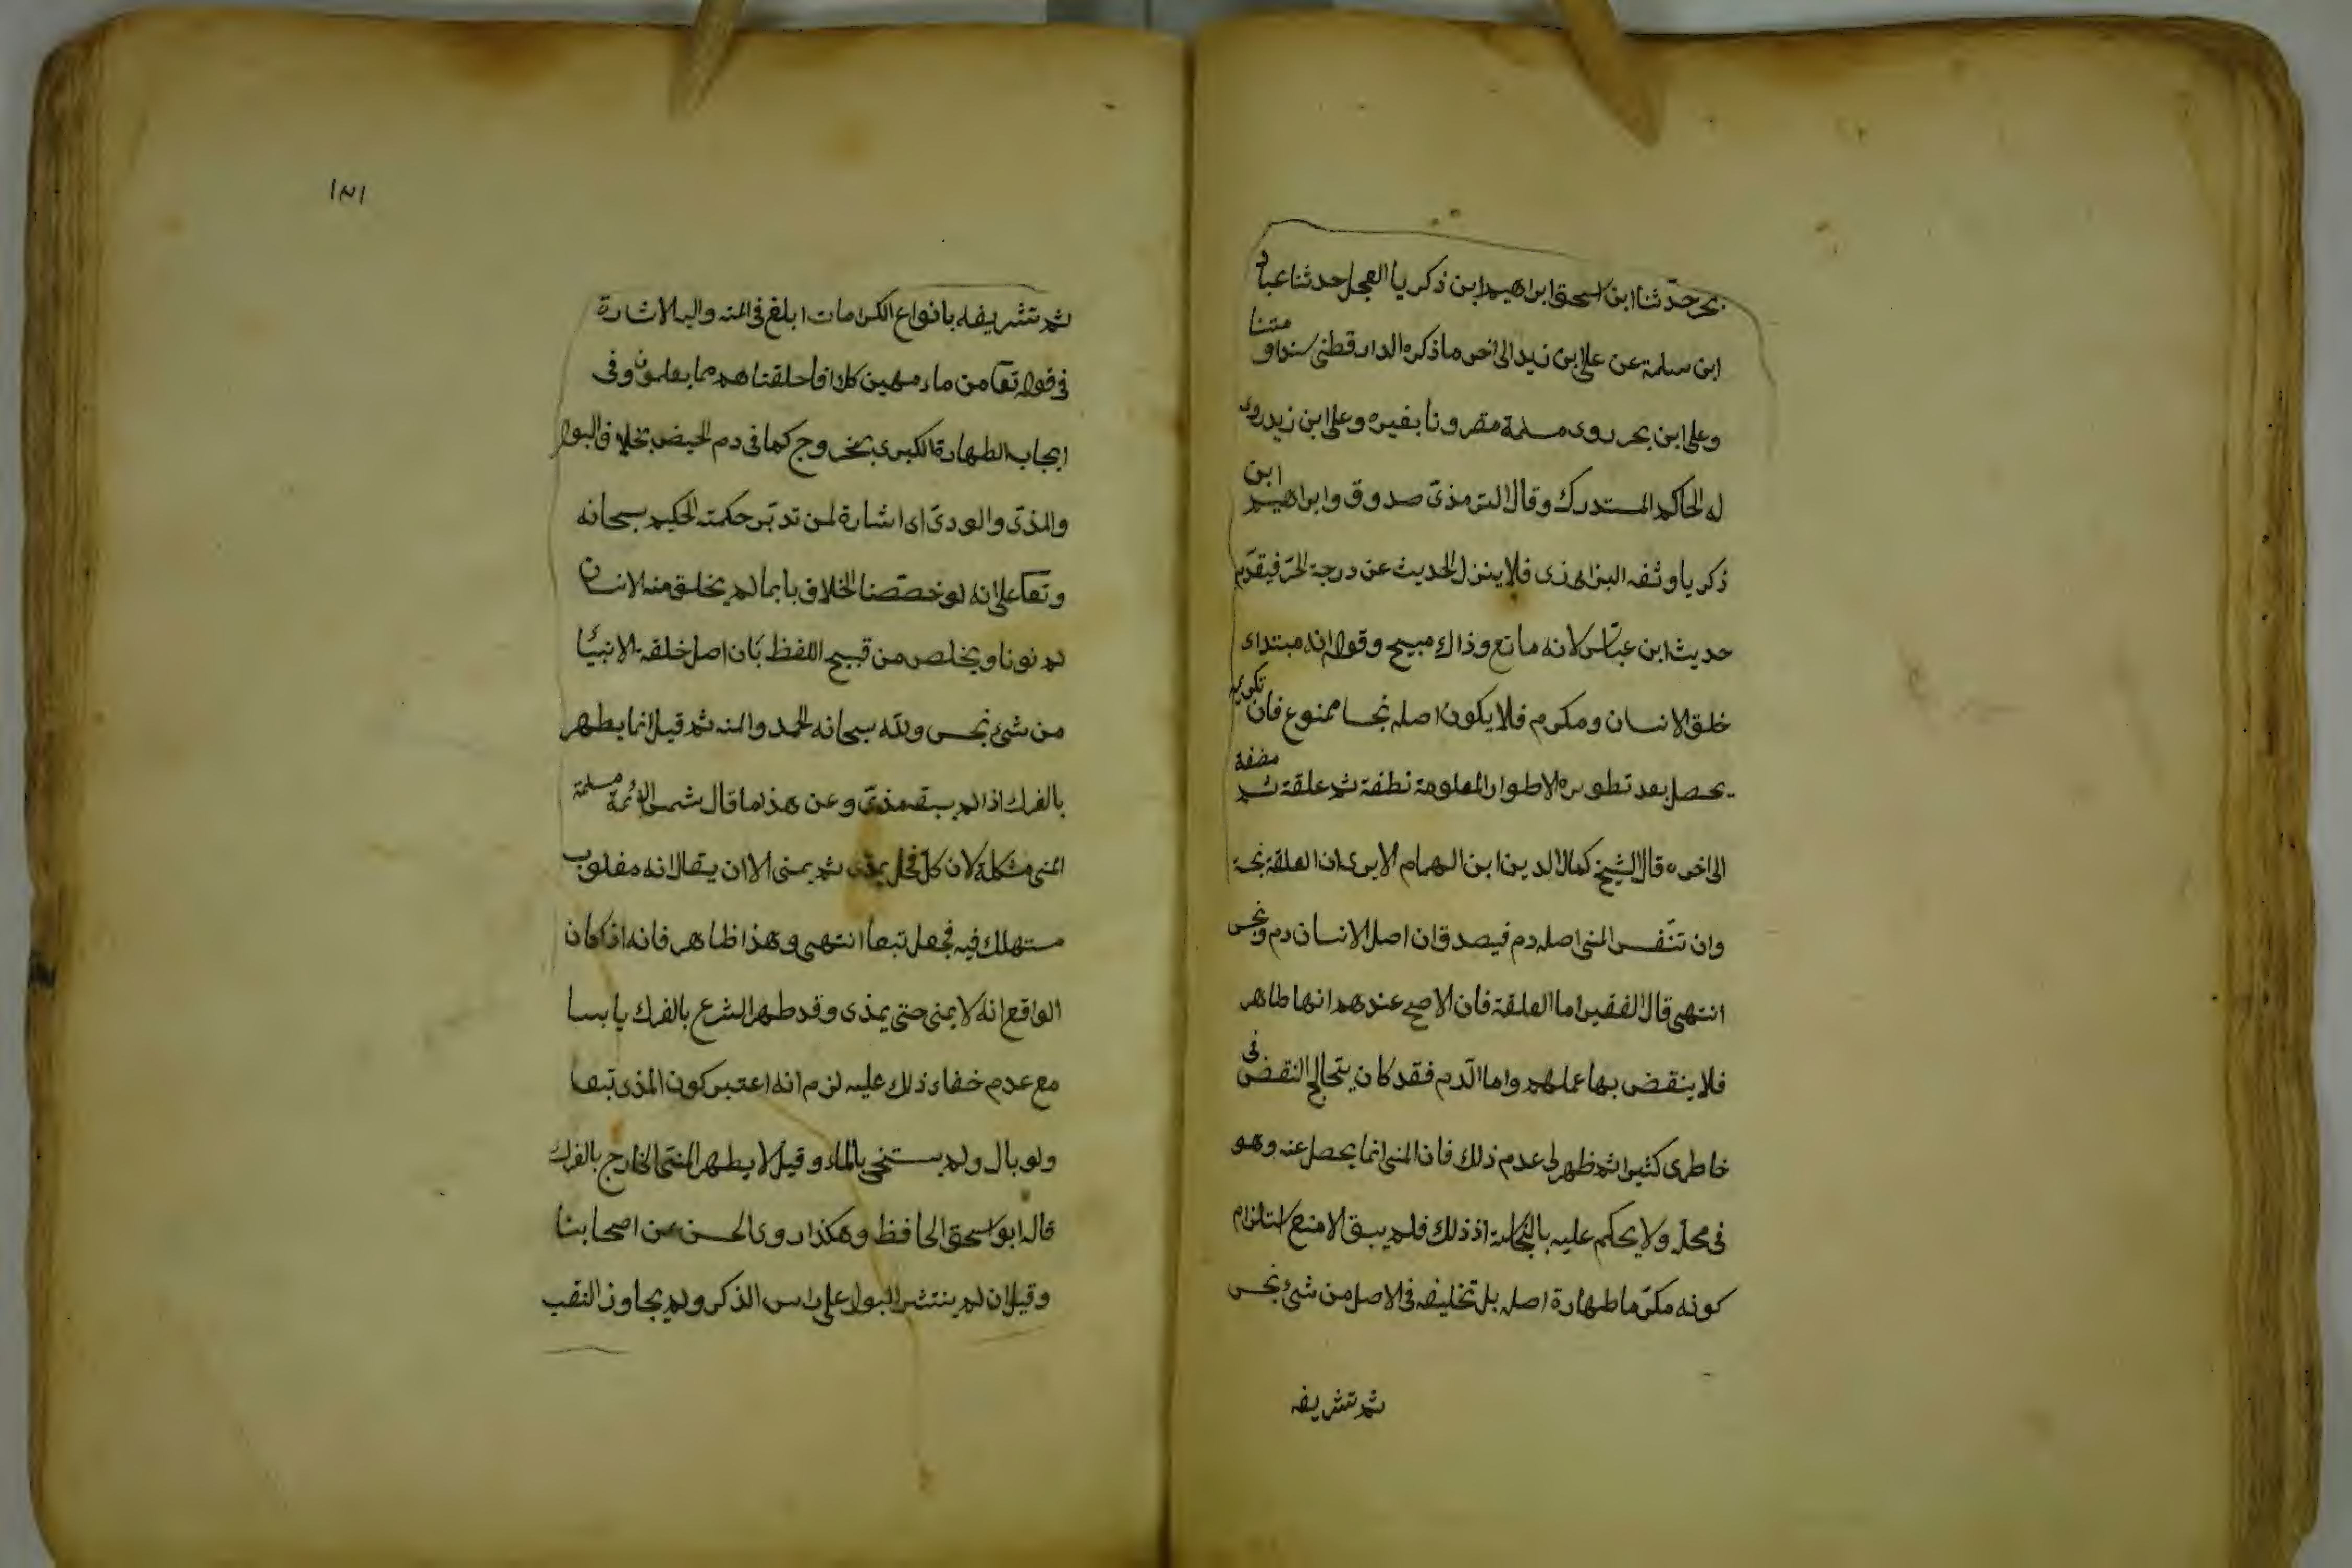 بحر حدثنا ابن اسحق ابراهيم ابن ذكريا العجل حدثنا عباد
ابن سلمة عن على ابن زيد الى اخر ما ذكره الدارقطنى سندا و متنا
وعلى ابن بحر روى مسلمة مقرونا بغيره وعلى ابن زيد روى
له الحاكم المستدرك وقال الترمذى صدوق وابراهيم ابن
ذكريا وثقه البزار فلا ينزل الحديث عن درجة فيقدم
حديث ابن عباس لانه مانع وذاك مبيح وقوله انه مبتداء
خلق الانسان ومكرم فلا يكون اصله نجسا ممنوع فان تكريمه
يحصل بعد تطويره الاطوار المعلومة نطفة ثم علقة ثم مضغة
الى اخره قال الشيخ كمال الدين ابن الهمام الا يرى ان العلقة نجسة
وان نفس المنى اصله دم فيصدق ان اصل الانسان دم ونجس
انتهى قال الفقير اما العلقة فان الاصح عندهم انها طاهر
فلا ينقض بها عملهم واما الدم فقد كان يتخالج النقض فى
خاطرى كثيرا ثم ظهر لى عدم ذلك فان المنى انما يحصل عنه وهو
فى محله ولا يحكم عليه بالنجاسة اذ ذلك فلم يبق الا منع استلزام
كونه مكرما طهارة اصله بل تخليقه فى الاصل من شئ نجس
ثم تشريفه
١٨١
ثم تشريفه بانواع الكرامات ابلغ فى المنه واليه الاشارة
فى قوله تعا من ماء مهين كلا انا خلقناهم مما يعلمون وفى
ايجاب الطهارة الكبرى بخروج كما فى دم الحيض بخلاف البول
والمذى والودى اى اشارة لمن تدبر حكمته الحكيم سبحانه
وتعا على انه لو خصصنا الخلاف بابما لم يخلق منه الانسان
لم نونا ويخلص من قبيح اللفظ بان اصل خلقه الانبيا
من شئ نجس ولله سبحانه الحمد والمنه ثم قيل انما يطهر
بالفرك اذا لم يسبقه مذى وعن هذا ما قال شمس الائمة مسئلة
المنى مشكلة لان كل فحل يمذى ثم يمنى الا ان يقال انه مغلوب
مستهلك فيه فجعل تبعا انتهى وهذا ظاهر فانه اذا كان
الواقع انه لا يمنى حتى يمذى وقد طهر الشرع بالفرك يابسا
مع عدم خفاء ذلك عليه لزم انه اعتبر كون المذى تبعا
ولو بال ولم يستنجى بالماء وقيل لا يطهر المنى الخارج بالفرك
قاله ابو اسحق الحافظ وهكذا روى الحسن عن اصحابنا
وقيل ان لم ينتشر البول على راس الذكر ولم يجاوز الثقب